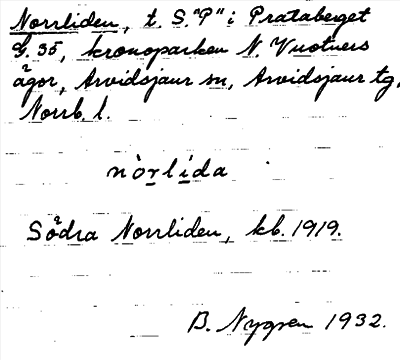 Norrliden, t. S. "P" i Prataberget
G. 35, kronoparken N. Vuotners
ågor, Arvidsjaur sn, Arvidsjaur tg,
Norrb. l.
nòrlida
Södra Norrliden, kb. 1919.
B. Nygren 1932.